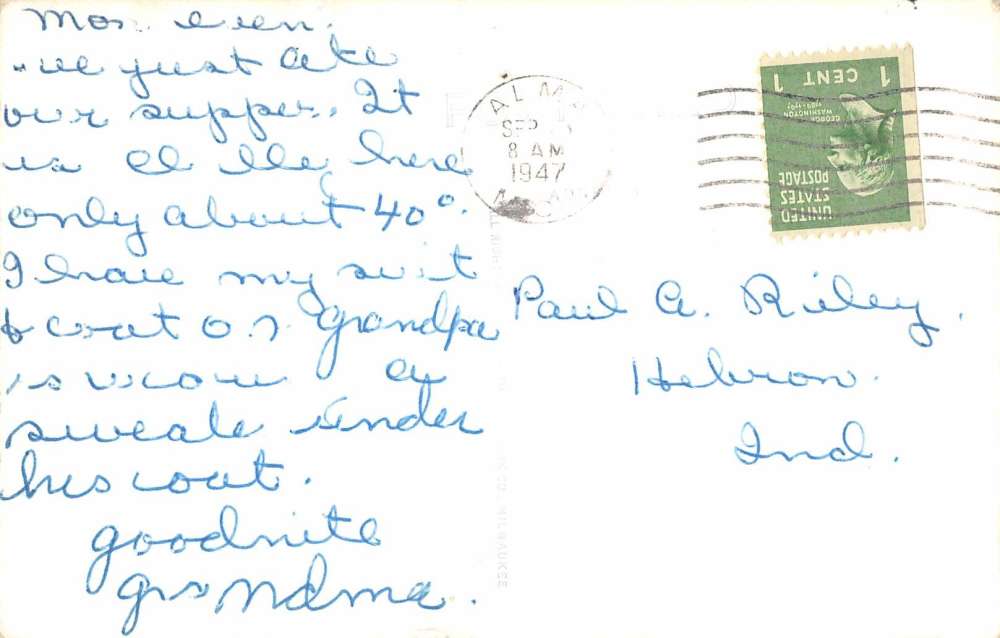 Mon. even.
we just ate
our supper. It
is chilley here
only about 40°.
I have my suit
& coat on. grandpa
is wearing a
sweater under
his coat.
goodnite
grandma.
Paul A. Rieley.
Hebron.
Ind.
SEP
8 AM
1947
1 CENT 1
GEORGE
WASHINGTON
UNITED
STATES
POSTAGE
MILWAUKEE